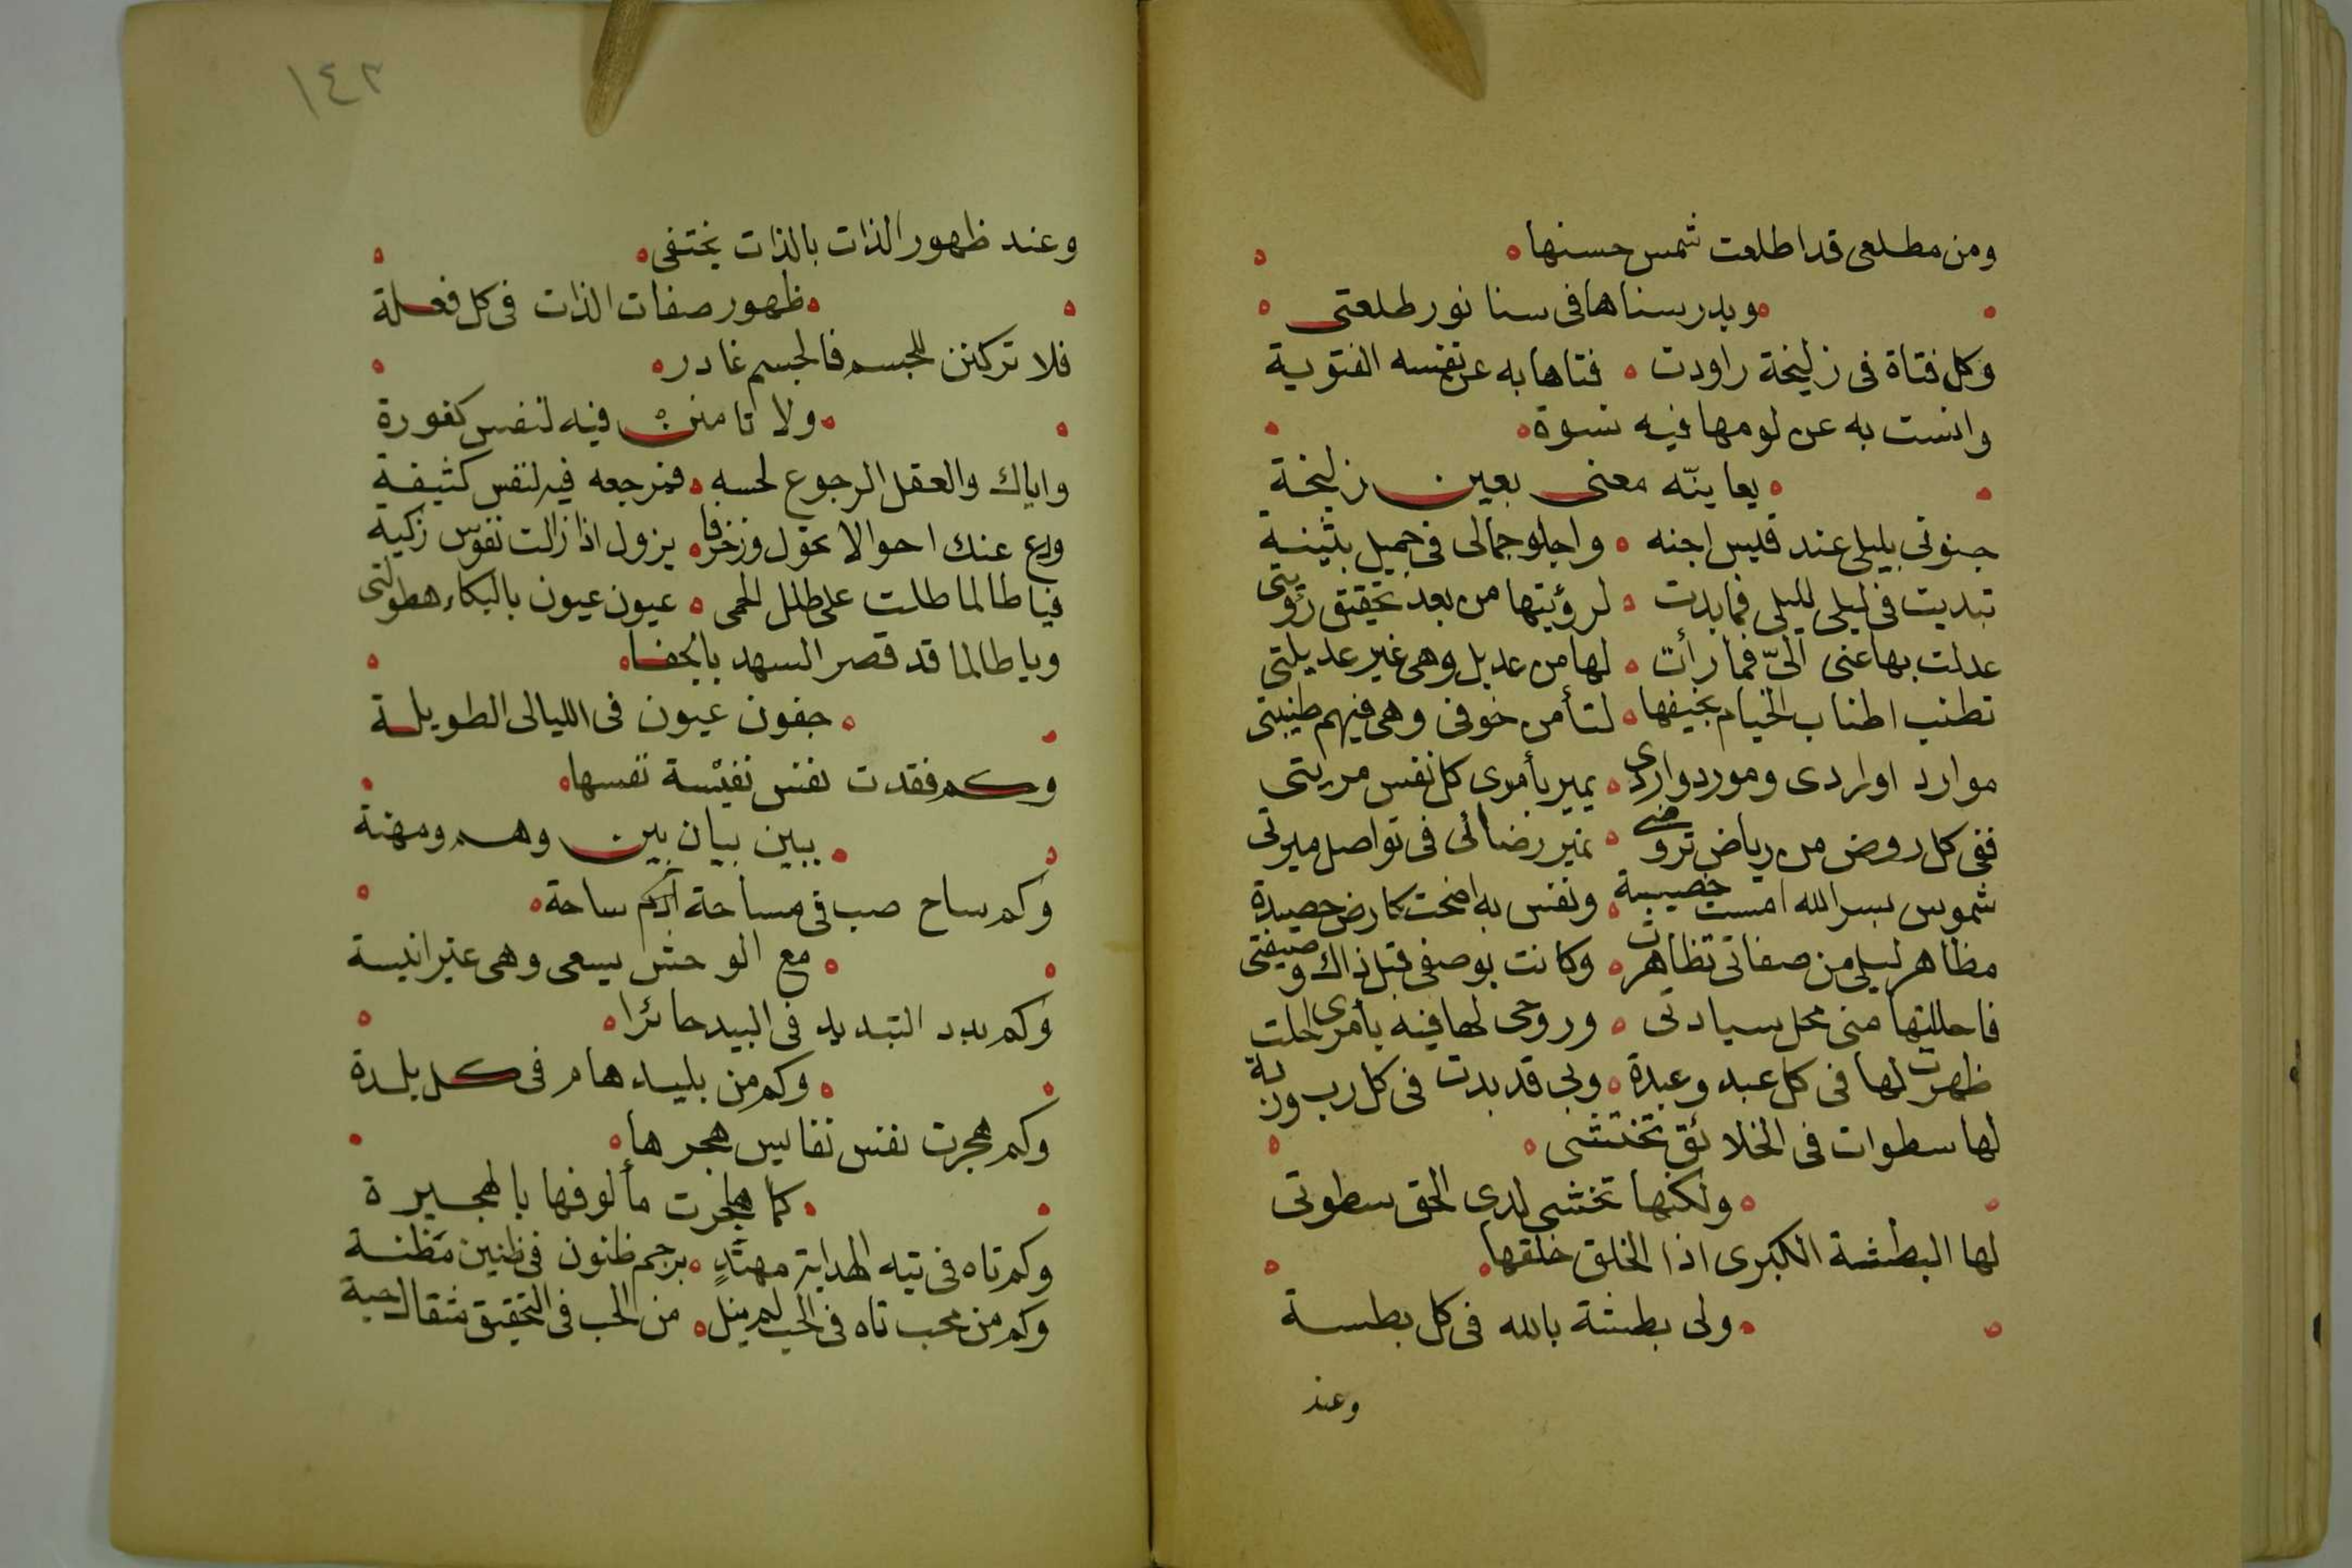 ومن مطلعى قد اطلعت شمس حسنها
وبدر سناها فى سنا نور طلعتى
وكل فتاة فى زليخة راودت فتاها به عن نفسه الفتوية
وانست به عن لومها فيه نسوة
يعاينّه معنى بعين زليخة
جنونى بليلى عند قيس اجنه واجلو جمالى فى جميل بثينة
تبديت فى ليلى لليلى فما بدت لرؤيتها من بعد تحقيق رؤيتى
عدلت بها عنى الىّ فما رأت لها من عديل وهى غير عديلتى
تطنب اطناب الخيام بخيفها لتأمن خوفى وهى فيهم طنيبتى
موارد اورادى ومورد واردى يمير بأمرى كل نفس مريتى
ففى كل روض من رياض تروضى نمير رضائى فى تواصل ميرتى
شموس بسر الله امست خصيبة ونفس به اضحت كارض حصيدة
مظاهر ليلى من صفاتى تظاهرت وكانت بوصفى قبل ذاك وصيفتى
فاحللتها منى محل سيادتى وروحى لها فيه بأمرى احلت
ظهرت لها فى كل عبد وعبدة وبى قد بدت فى كل رب وربة
لها سطوات فى الخلائق تختشى
ولكنها تخشى لدى الحق سطوتى
لها البطشة الكبرى اذا الخلق خلقها
ولى بطشة بالله فى كل بطسة
وعند
١٤٣
وعند ظهور الذات بالذات يختفى
ظهور صفات الذات فى كل فعلة
فلا تركنن للجسم فالجسم غادر
ولا تامنن فيه لنفس كفورة
واياك والعقل الرجوع لحسه فمرجعه فيه لنفس كثيفة
ودع عنك احوالا تحول وزخرفا يزول اذا زالت نفوس زكية
فيا طالما طلت على طلل الحمى عيون عيون بالبكاء هطولتى
ويا طالما قد قصر السهد بالجفا
جفون عيون فى الليالى الطويلة
وكم فقدت نفس نفيسة نفسها
ببين بيان بين وهم ومهنة
وكم ساح صب فى مساحة اكم ساحة
مع الوحش يسعى وهى غير انيسة
وكم بدد التبديد فى البيد حائرا
وكم من بليد هام فى كل بلدة
وكم هجرت نفس نفايس هجرها
كما هاجرت مألوفها بالهجيرة
وكم تاه فى تيه الهداية مهتدٍ برجم ظنون فى ظنين مظنة
وكم من محب تاه فى الحب لم ينل من الحب فى التحقيق مثقال حبة